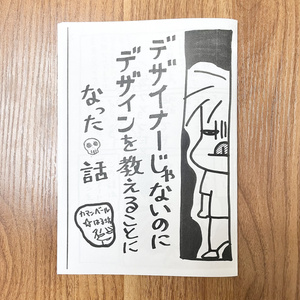 デザイナーじゃないのに
デザインを教えることに
なった話
カマンベール
☆はるか